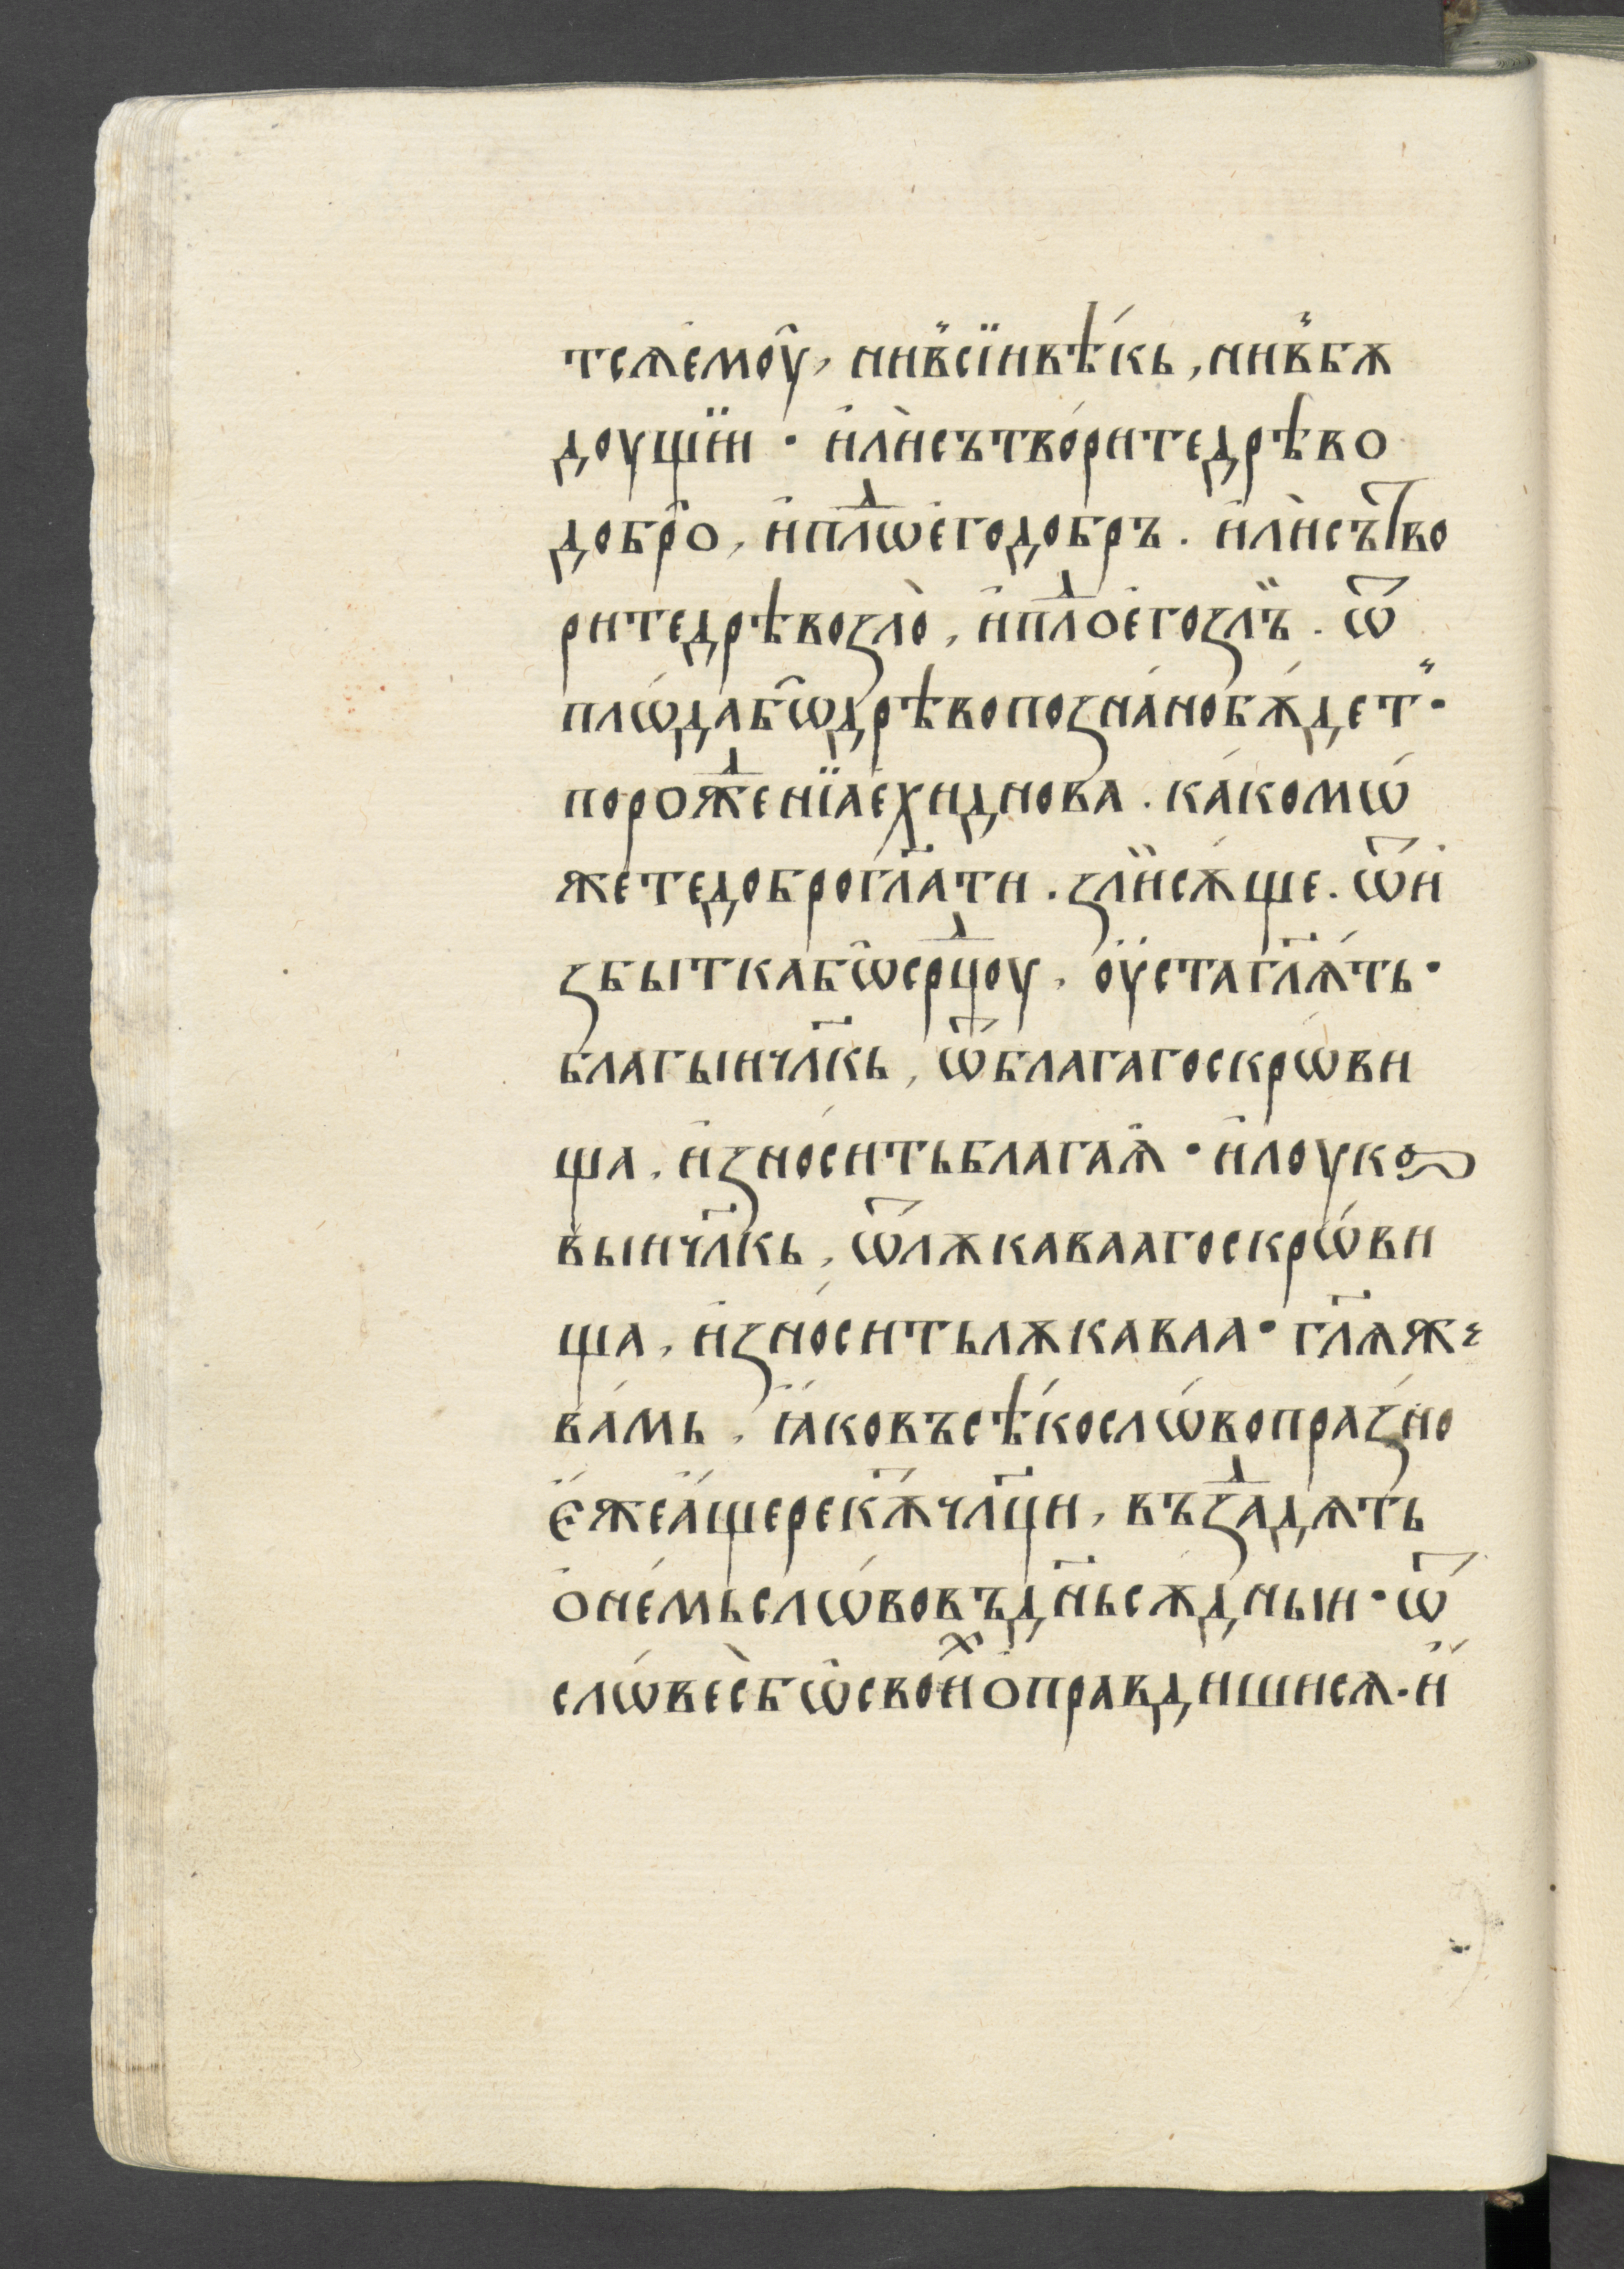 тсѧ҆емоу̑, нив̾сїивѣ́кь, нив̾бѫ
доущїи · и҆лѝсътво́ритедрѣво
добро̑, и҆плⷣѡе҆годобръ. и҆лѝсътво
ритедрѣвоꙁло̀, и҆плⷣое҆гоꙁлъ̏. ѿ
плѡ́дабѡ̑дрѣвопоꙁна́нобѫ́дет̾·
порожⷣенїае҆хиднова. ка́комѡ́
жетедоброгл҃ати. ꙁлїисѫ́ще. ѿи҆
ꙁбыткабѡ̑срⷣцоу, оу҆стагл҃ѧ́ть·
благыичл҃кь, ѿ́благагоскрѡ́ви
ща, и҆ꙁно́ситьблагаѧ҆· и҆лоука
выичл҃кь, ѿлѫкаваагоскрѡ́ви
ща, и҆ꙁно́ситьлѫкаваа· гл҃ѧже
ва́мь, ꙗ҆́ковъсѣ́кослѡ́вопра́ꙁно
є҆́жеа҆́щерекѫ́тчл҃ци, въꙁⷣадѧть
о҆не́мьслѡ́вовъдн҃ьсѫдныи· ѿ
слѡ́весѐбѡ̑своиⷯо҆правдишисѧ. и҆́